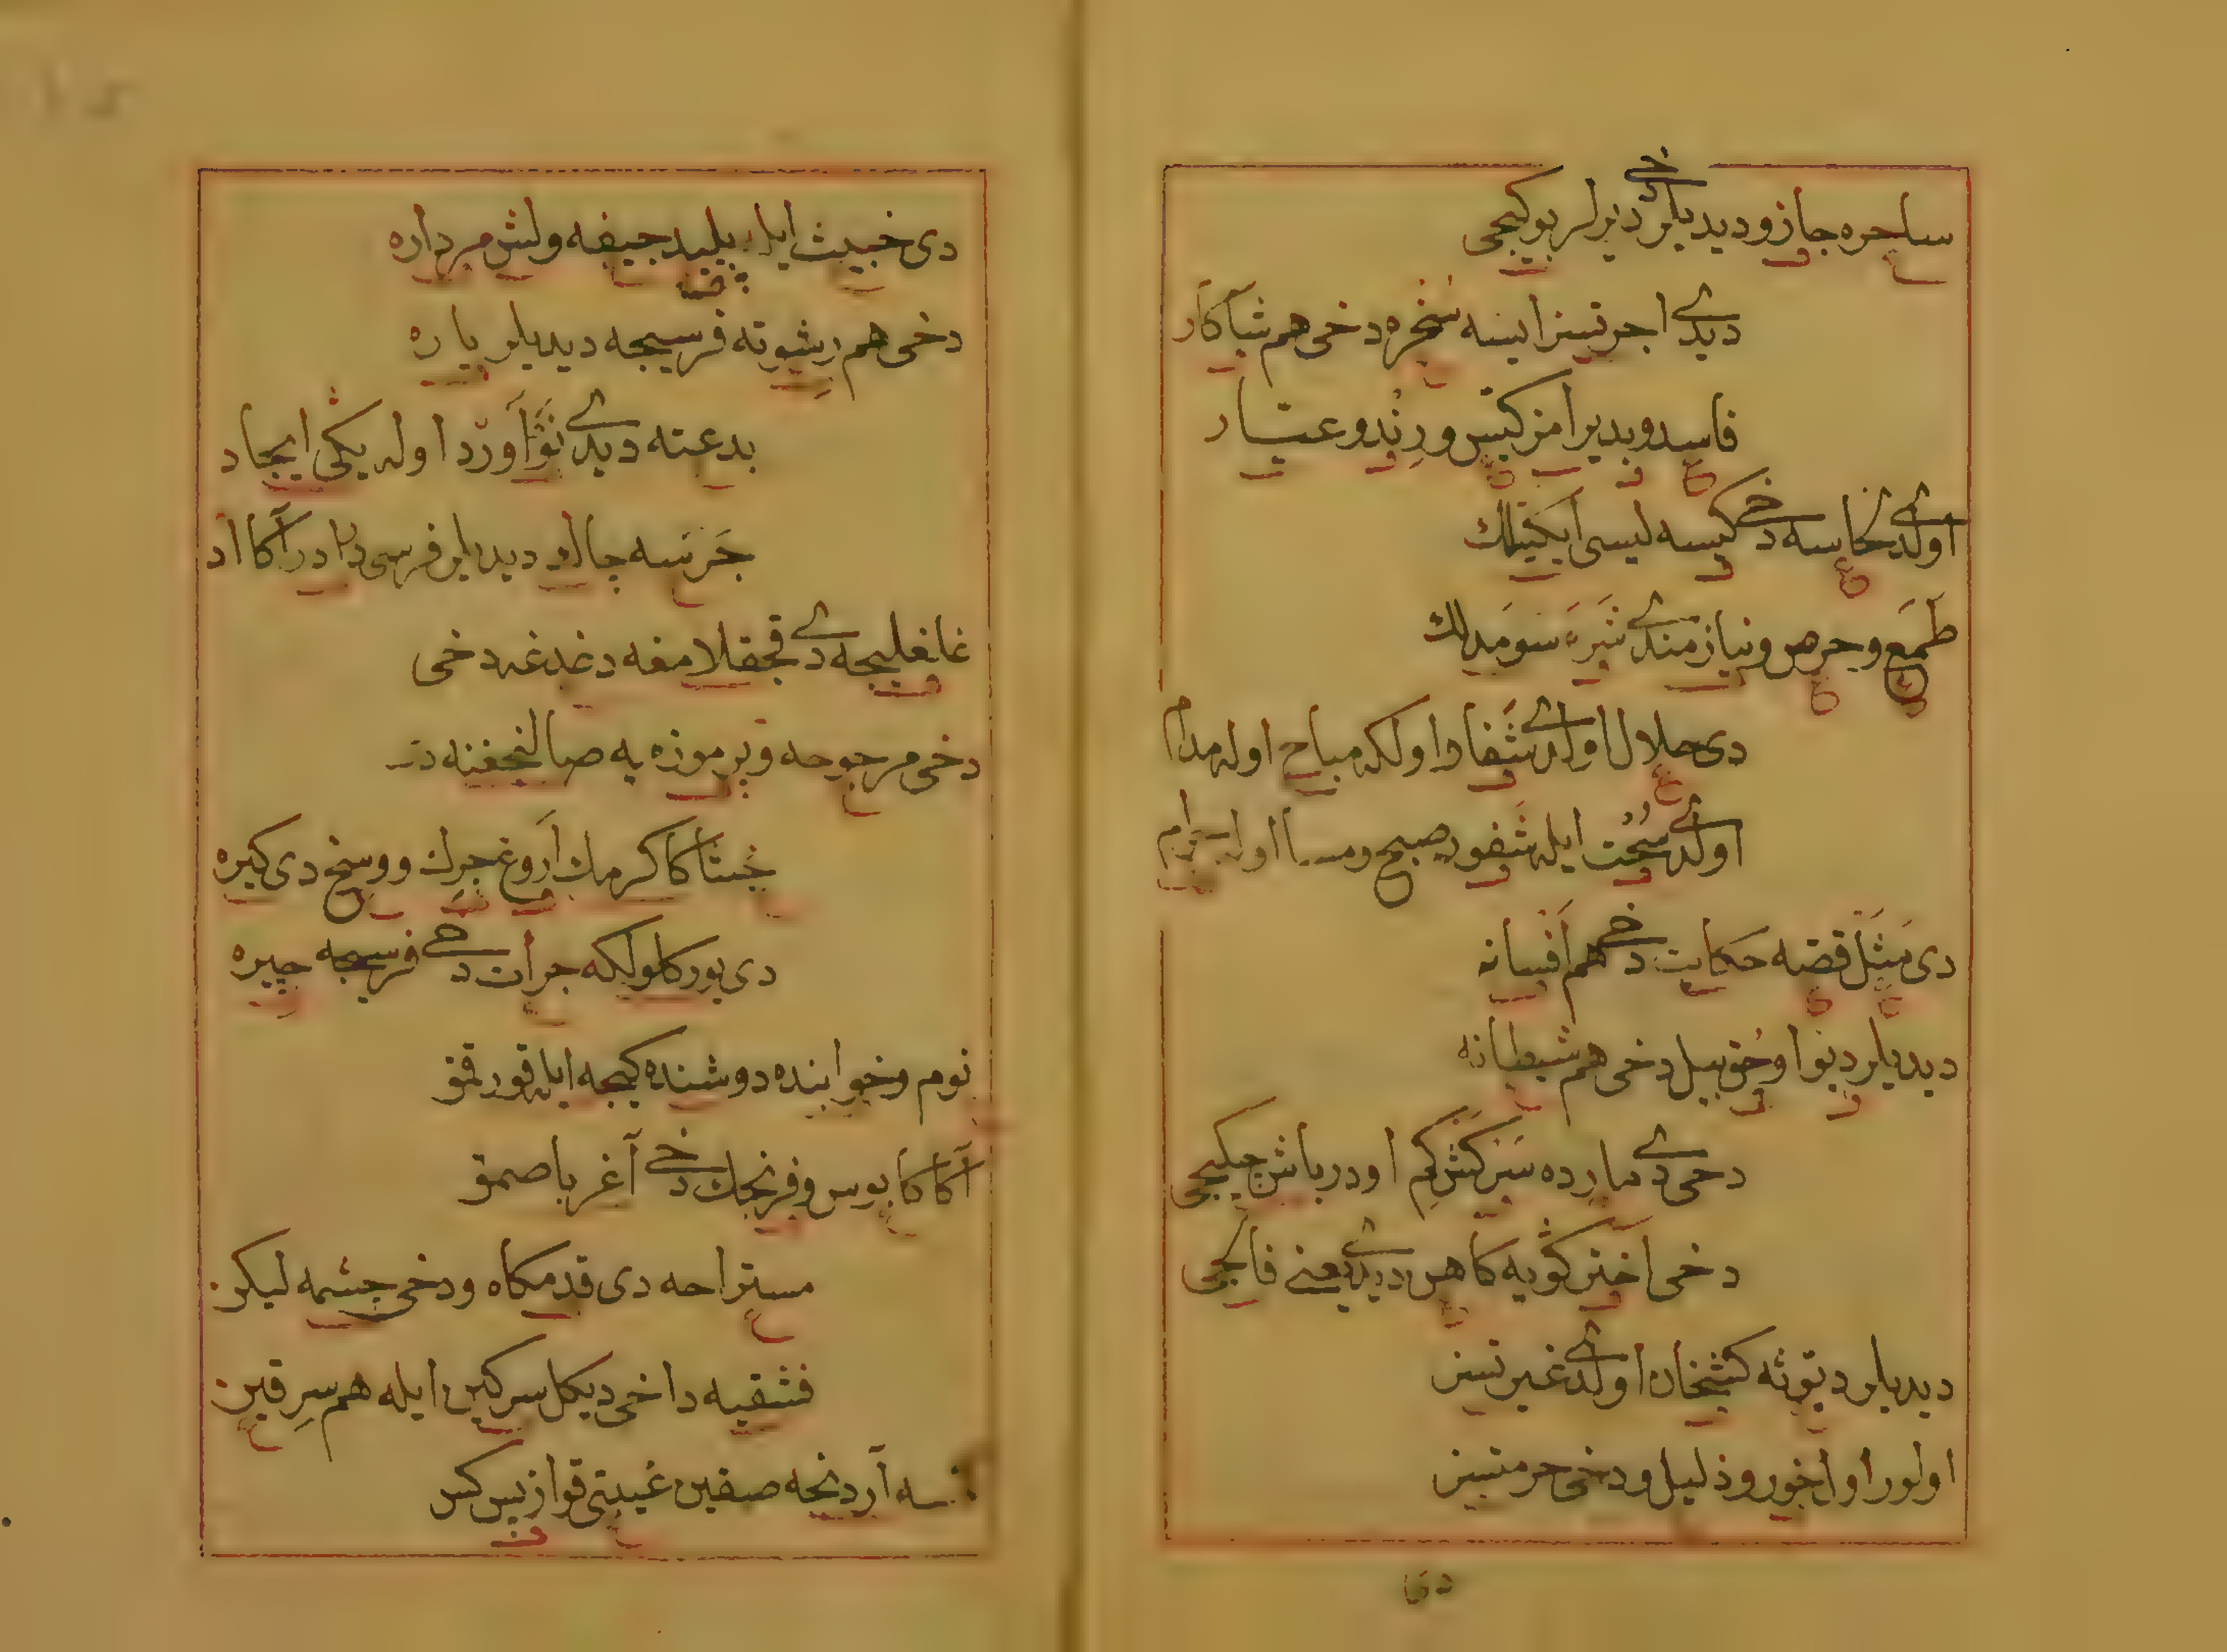 ساحره جازو دیدیلر دخی دیرلر بوکیجی
دیدی اجرتسز ایسه سخره دخی هم شاکار
فاسد و بدیرامز کتس و رند و عیار
اولدی کاسه دخی کیسه لیسی ایکیلك
طمع و حرص و نیازمندی شره سومدلك
دی حلال اولدی شفا وا ولکه مباح اوله مدام
اولدی سحت ایله شفود صبح و مسا اوله حرام
دی مثل قصه حکایت دخی هم افسانه
دیدیلر دیو اوحق بیل دخی هم شیطانه
دخی دی مارده سرکش کم اودر باش چکیجی
دخی اخترکویه کاهن دیدی یعنی فالجی
دیدیلر دیوثه کشخان اولدی غیرتسز
اولور اول خور و ذلیل و دخی حرمتسز
دی
دی خبیث ایله پلید جیفه و لش مرداره
دخی هم رشوته فرسیجه دیدیلر پاره
بدعته دیدی نوآورد اوله یکی ایجاد
جرسه چالو دیدیلر فرسی درا در آکا اد
غافلیجه دی قجقلامغه دغدغه دخی
دخی مرجوحه و پرموزه یه صالنجغنه
خستاکا کرمك اروغ چرك و وسخ دی کیره
دی یورکلولکه جرات دخی فرسیجه چیره
نوم و خوابنده دوشنده کیجه ایله قورقمق
آکا کابوس و فرنجك دخی آغر باصمق
مستراحه دی قدمکاه و دخی چشمه لیکن
فشقیه داخی دیکل سرکین ایله هم سرقین
آردنجه صقین غیبتی قوازیس کس